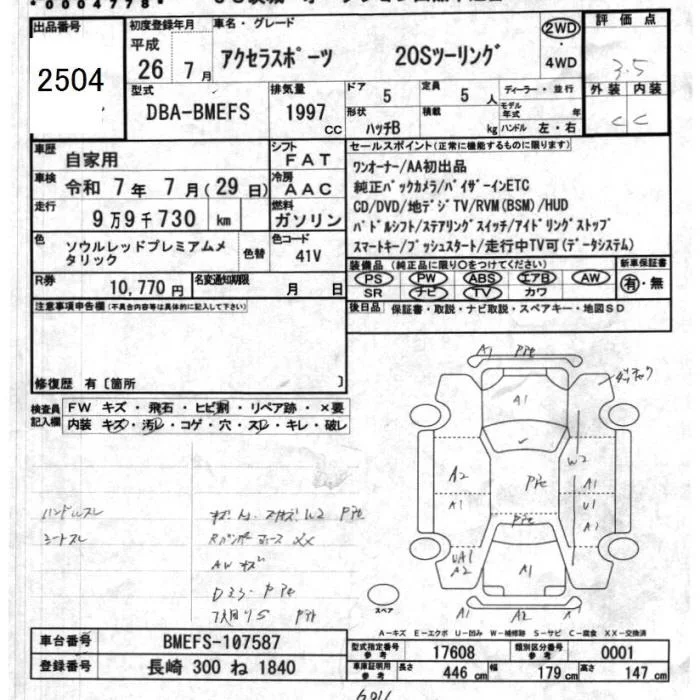 *0004778*
出品番号
2504
初度登録年月
平成
26年 7月
車名・グレード
アクセラスポーツ 20Sツーリング
2WD
・
4WD
評価点
3.5
外装 内装
C C
型式
DBA-BMEFS
排気量
1997
cc
ドア
5
定員
5人
形状
ハッチB
積載
kg
ディーラー・並行
モデル年式 年
ハンドル 左・右
車歴
自家用
シフト
FAT
車検
令和 7年 7月(29日)
冷房
AAC
走行
9万9千730 km
燃料
ガソリン
色
ソウルレッドプレミアムメタリック
色替
色コード
41V
R券
10,770円
名変通知期限
月 日
セールスポイント(正常に機能するものに限ります)
ワンオーナー/AA初出品
純正バックカメラ/バイザーインETC
CD/DVD/地デジTV/RVM(BSM)/HUD
パドルシフト/ステアリングスイッチ/アイドリングストップ
スマートキー/プッシュスタート/走行中TV可(データシステム)
装備品(純正品に限り○をつけてください)
PS PW ABS エアB AW
SR ナビ TV カワ
新車保証書
有・無
後日品
保証書・取説・ナビ取説・スペアキー・地図SD
注意事項申告欄(不具合内容等は具体的に記入して下さい)
修復歴 有〔箇所 〕
検査員記入欄
FW キズ・飛石・ヒビ割・リペア跡・×要
内装 キズ・汚レ・コゲ・穴・スレ・キレ・破レ
ハンドルスレ
シートスレ
AWキズ
A1
A1
W2
A2
A1
A1
U1
A1
UA1
A2
A1
A1
A2
スペア
A-キズ E-エクボ U-凹み W-補修跡 S-サビ C-腐食 XX-交換済
車台番号
BMEFS-107587
登録番号
長崎 300 ね 1840
型式指定番号
参考
17608
類別区分番号
参考
0001
車庫証明用
参考
長さ
446 cm
幅
179 cm
高さ
147 cm